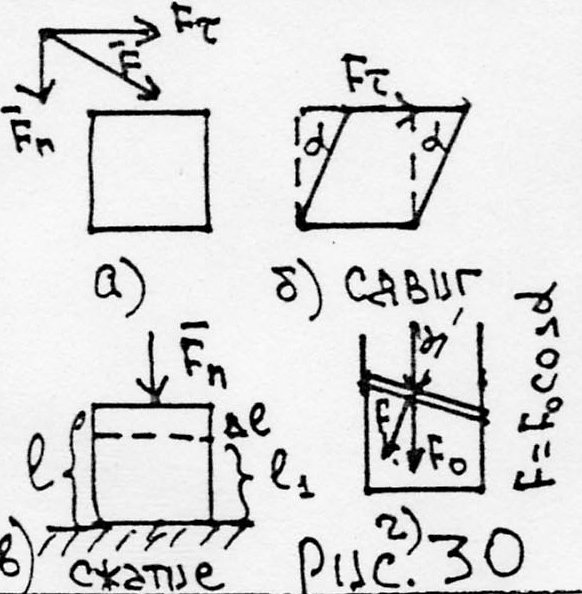 Fτ
F̄
F̄n
а)
Fτ
α α
б) сдвиг
F̄n
Δℓ
ℓ
ℓ₁
в)
сжатие
α
F
F₀
F=F₀cosα
г)
Рис. 30